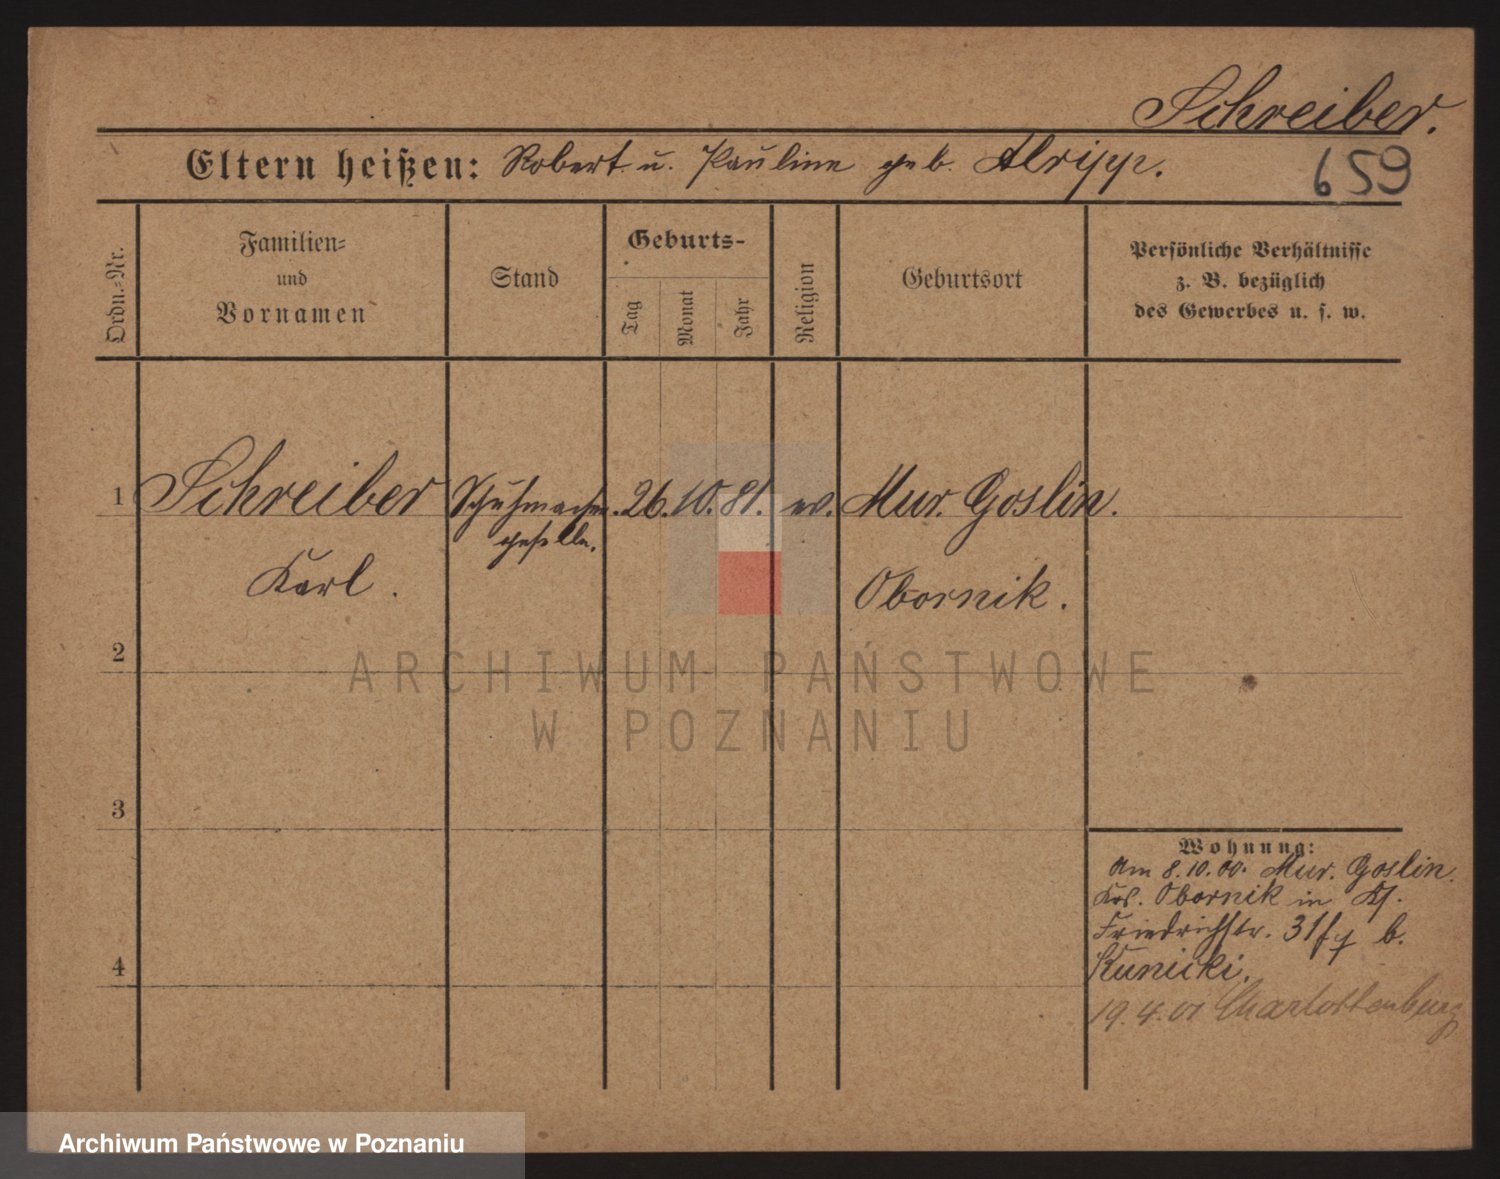 Schreiber.
Eltern heißen: Robert u. Pauline geb.
659
Ordn.-Nr.
Familien-
und
Vornamen
Stand
Geburts-
Tag
Monat
Jahr
Religion
Geburtsort
Persönliche Verhältnisse
z. B. bezüglich
des Gewerbes u. s. w.
1 Schreiber Schuhmacher 26. 10. 81. ev. Mur. Goslin.
geselle.
Karl. Obornik.
2
ARCHIWUM PAŃSTWOWE
W POZNANIU
3
Wohnung:
Am 8.10.00. Mur. Goslin.
Krs. Obornik in
Friedrichstr. 31 b.
Kunicki.
4
19.4.01 Charlottenburg
Archiwum Państwowe w Poznaniu